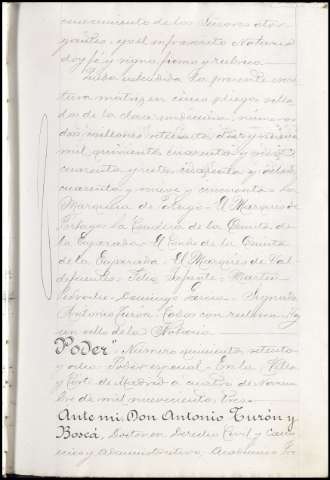 conocimiento de los Señores otor-
gantes, yo el infrascrito Notario
doy fé y signo, firmo y rubrico.
la presente escri-
tura matriz en cinco pliegos sella-
dos de la clase undécima, números
dos millones setecientos diez y nueve
mil quinientos cuarenta y siete,
cuarenta y siete, cincuenta y ocho,
cuarenta y nueve y cincuenta = La
Marquesa de Portago = El Marques de
Portago = La Condesa de la Quinta de
la Enjarada = El Conde de la Quinta
de la Enjarada = El Marqués de Val-
difuentes = Felix Infante = Martin
= Domingo = Signado
Antonio Turón = Todos con rubrica = Hay
un sello de la Notaria
Poder" = Número quinientos setenta
y ocho = Poder especial = En la Villa
y Corte de Madrid a cuatro de Novem-
bre de mil novecientos tres =
Ante mi, Don Antonio Turón y
Boscá, Doctor en Derecho Civil y Canó-
nico y Administrativo, Académico